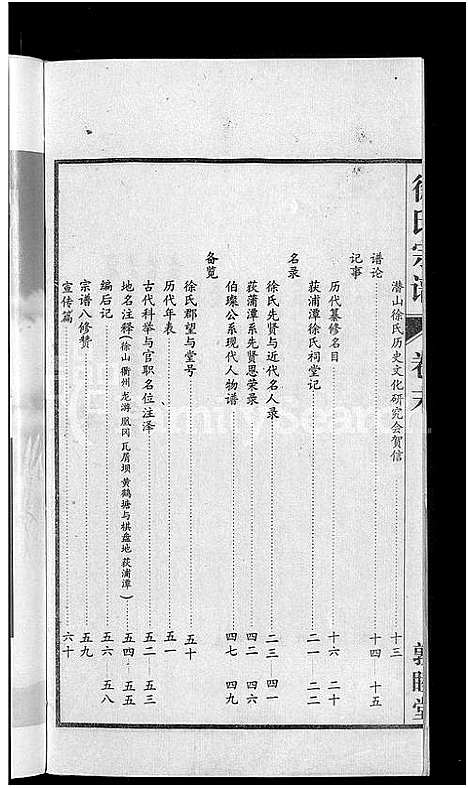 徐氏宗谱 卷首 敦睦堂
潜山徐氏历史文化研究会贺信 十三
谱论 十四 十五
记事
历代纂修名目 十六 二十
荻浦潭徐氏祠堂记 二一 二二
名录
徐氏先贤与近代名人录 二三 四一
荻蒲潭系先贤恩荣录 四二 四六
伯璨公系现代人物谱 四七 四九
备览
徐氏郡望与堂号 五十
历代年表 五一
古代科举与官职名位注泽 五二 五三
地名注释(徐山 衢州 龙游 凰冈 瓦屑坝 黄鹤塘与棋盘地 荻浦潭) 五四 五五
编后记 五六 五八
宗谱八修赞 五九
宣传篇 六十